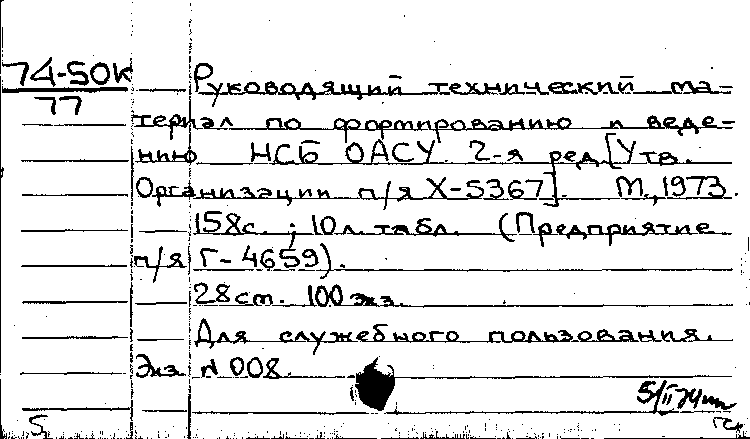 74-50К
77
Руководящий технический ма-
териал по формированию и веде-
нию НСБ ОАСУ. 2-я ред. [Утв.
Организации п/я Х-5367]. М., 1973.
158с.; 10л. табл. (Предприятие
п/я Г-4659).
28см. 100 экз.
Для служебного пользования.
Экз. N 008.
5/II 74
5